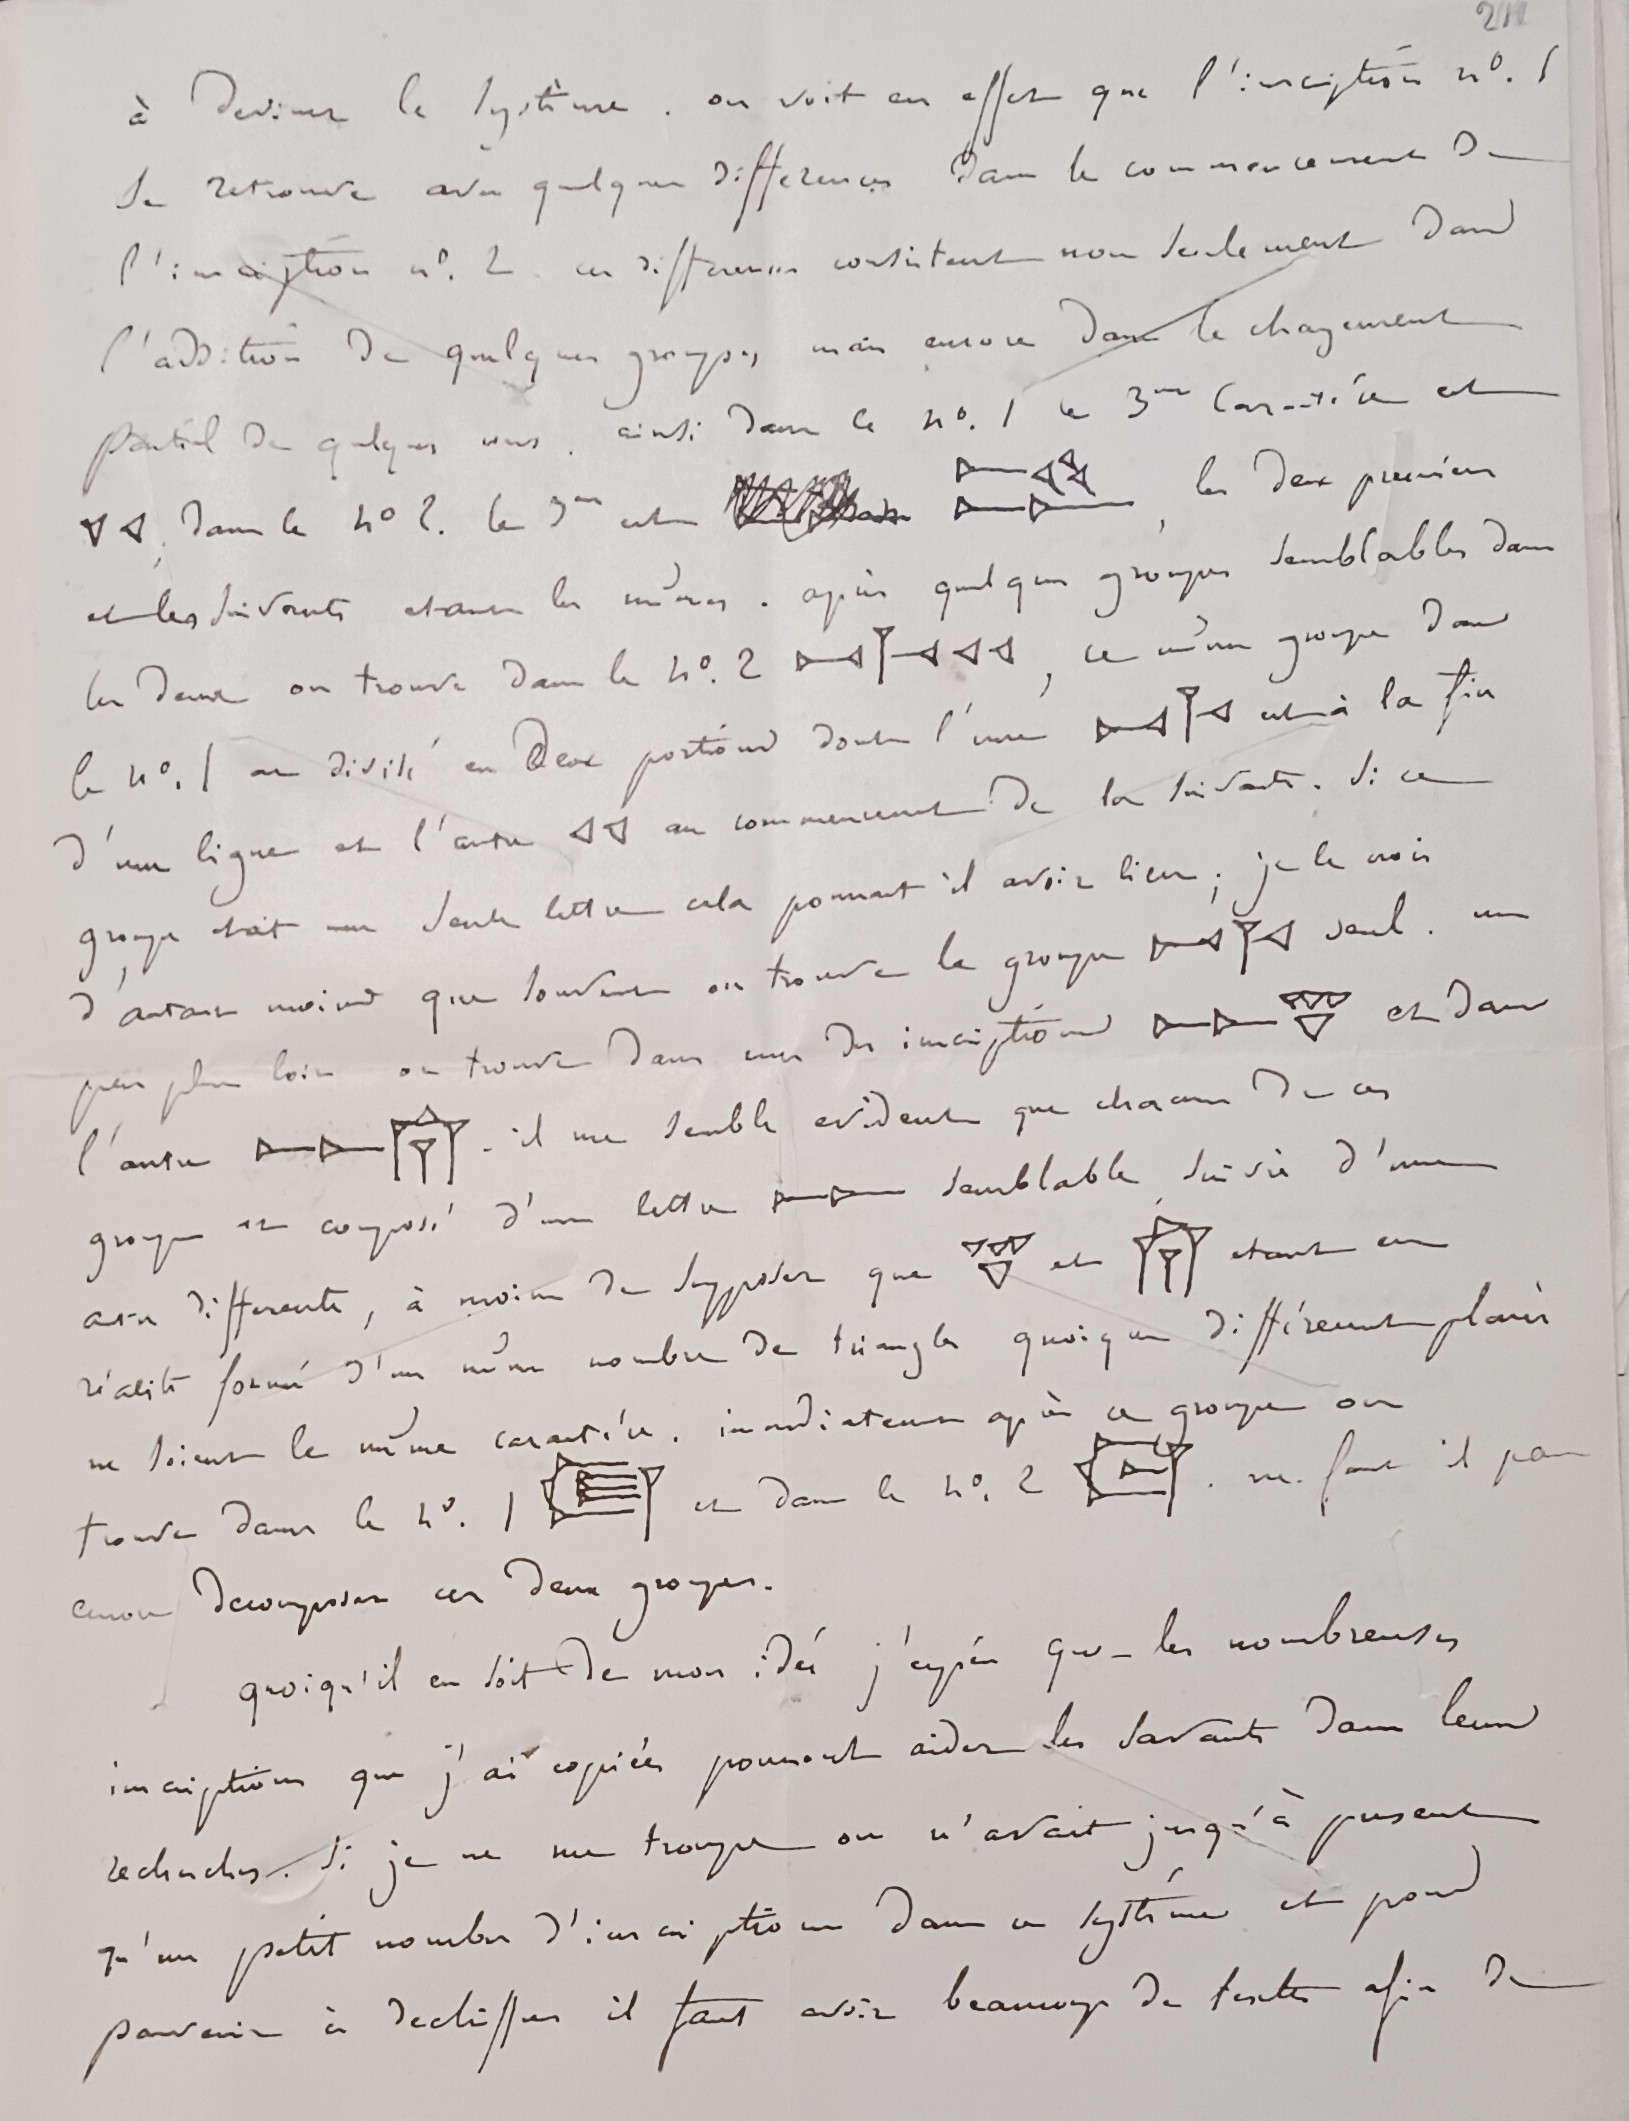 211
à deviner le système. on voit en effet que l'inscription n°. 1
se retrouve avec quelques differences dans le commencement de
l'inscription n°. 2. ces differences consistent non seulement dans
l'addition de quelques groupes, mais encore dans le changement
partiel de quelques uns. ainsi dans le n°. 1 le 3me caractére est
dans le n° 2. le 3me est les deux premiers
et les suivants etant les mêmes. après quelques groupes semblables dans
les deux on trouve dans le n°. 2 , ce même groupe dans
le n°. 1 est divisé en deux portions dont l'une est à la fin
d'une ligne et l'autre au commencement de la suivante. si ce
groupe etait une seule lettre cela pourrait il avoir lieu; je le crois
d'autant moins que souvent on trouve le groupe seul. un
peu plus loin on trouve dans une des inscriptions et dans
l'autre . il me semble evident que chacun de ces
groupes est composé d'une lettre semblable, suivie d'une
autre differente, à moins de supposer que et etant en
réalité formé d'un même nombre de triangles quoique différemment placés
ne soient le même caractére. immediatement après ce groupe on
trouve dans le n°. 1 et dans le n°. 2 . ne faut il pas
encore decomposer ces deux groupes.
quoiqu'il en soit de mon idée j'espére que les nombreuses
inscriptions que j'ai copiées pourront aider les savants dans leurs
recherches. si je ne me trompe on n'avait jusqu'à present
qu'un petit nombre d'inscriptions dans ce systéme et pour
parvenir à dechiffrer il faut avoir beaucoup de textes afin de